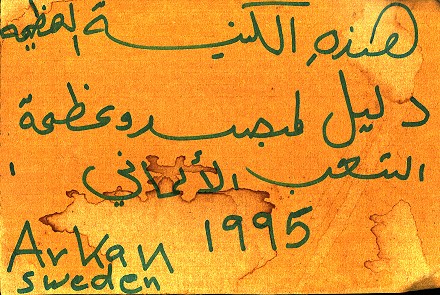 هذه الكنيسة العظيمة
دليل لمجد وعظمة
الشعب الألماني !
1995
Arkan
sweden